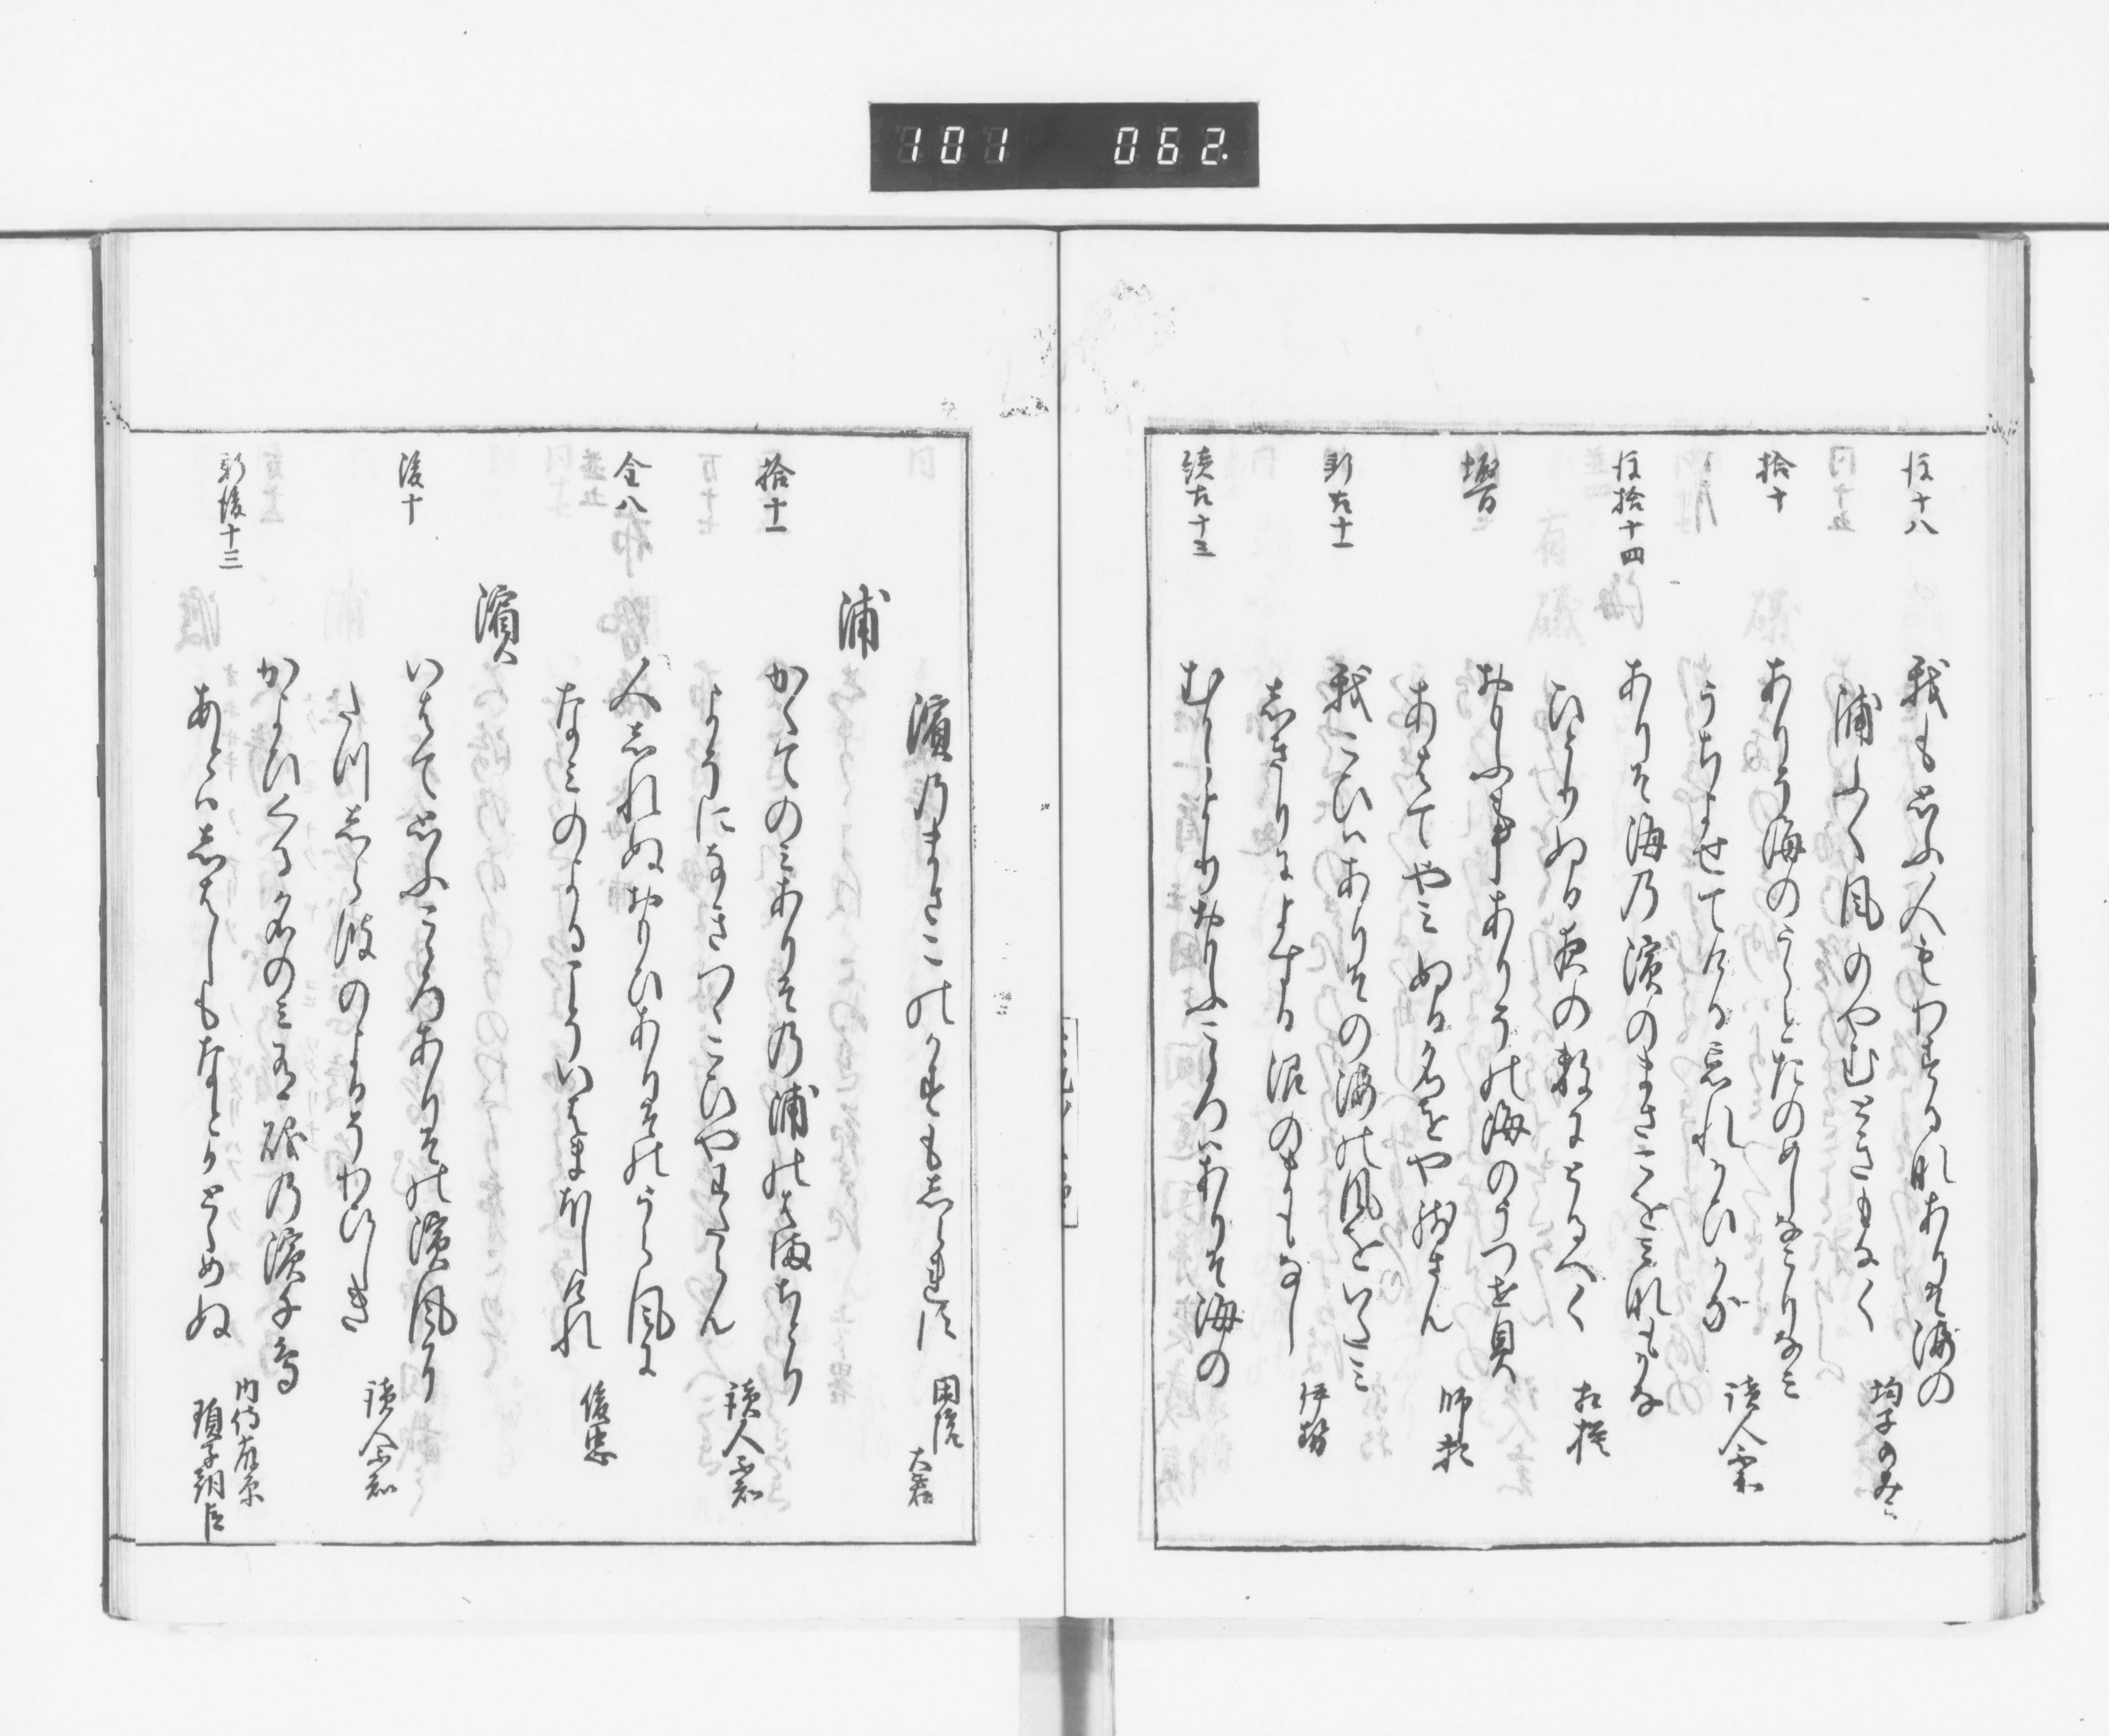 101 062.
後十八
我も思ふ人もわするなありそ海の
浦ふく風のやむときもなく
均子のみこ
拾十
ありそ海のうらとたのめしなこりなみ
うちよせてける忘れかひかな
読人不知
後拾十四
ありそ海の濱のまさこをみなもかな
ひとりぬる夜の数にとるへく
相模
堀百
おもふ事ありその海のうつせ貝
あはてやみぬる名をや残さん
師頼
新古十一
我こひはありその海の風をいたみ
しきりによする浪のまもなし
伊勢
續古十三
むかしよりおもふこころはありそ海の
濱のまさこのかすもしられす
国信
浦
拾十一
かくてのみありその浦の濱ちとり
よそになきつつこひやわたらん
読人不知
金八
人しれぬおもひありそのうら風に
なみのよるこそいはまほしけれ
俊忠
濱
後十
いはて思ふこころありその濱風に
たつしら波のよるそわひしき
読人不知
新後十三
かよひくる名のみ有磯の濱千鳥
あとはしはしもなとかとゝめぬ